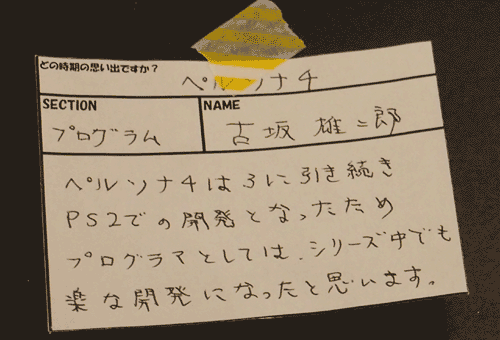 どの時期の思い出ですか?
ペルソナ4
SECTION
プログラム
NAME
古坂 雄二郎
ペルソナ4は3に引き続き
PS2での開発となったため
プログラマとしては、シリーズ中でも
楽な開発になったと思います。